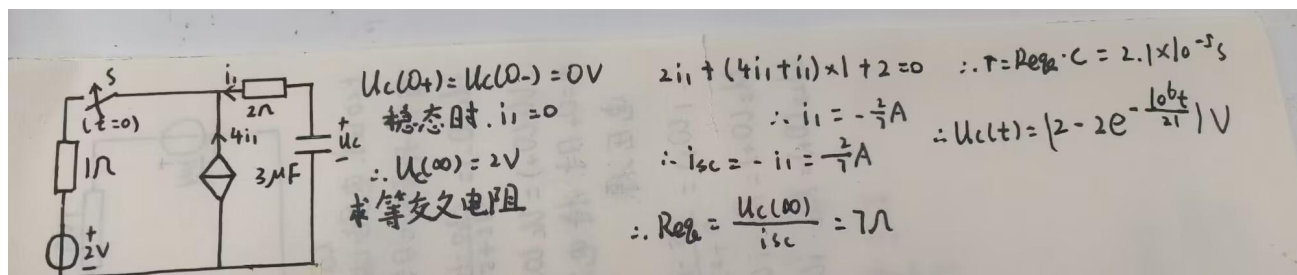 S
(t=0)
1Ω
+
2V
-
4i₁
i₁
2Ω
3μF
+
Uc
-
Uc(0+)=Uc(0-)=0V
稳态时.i₁=0
∴Uc(∞)=2V
求等交文电阻
2i₁+(4i₁+i₁)×1+2=0
∴i₁=-2/7A
∴isc=-i₁=2/7A
∴Req=Uc(∞)/isc=7Ω
∴τ=Req·C=2.1×10⁻⁵s
∴Uc(t)=(2-2e^(-10⁶t/21))V